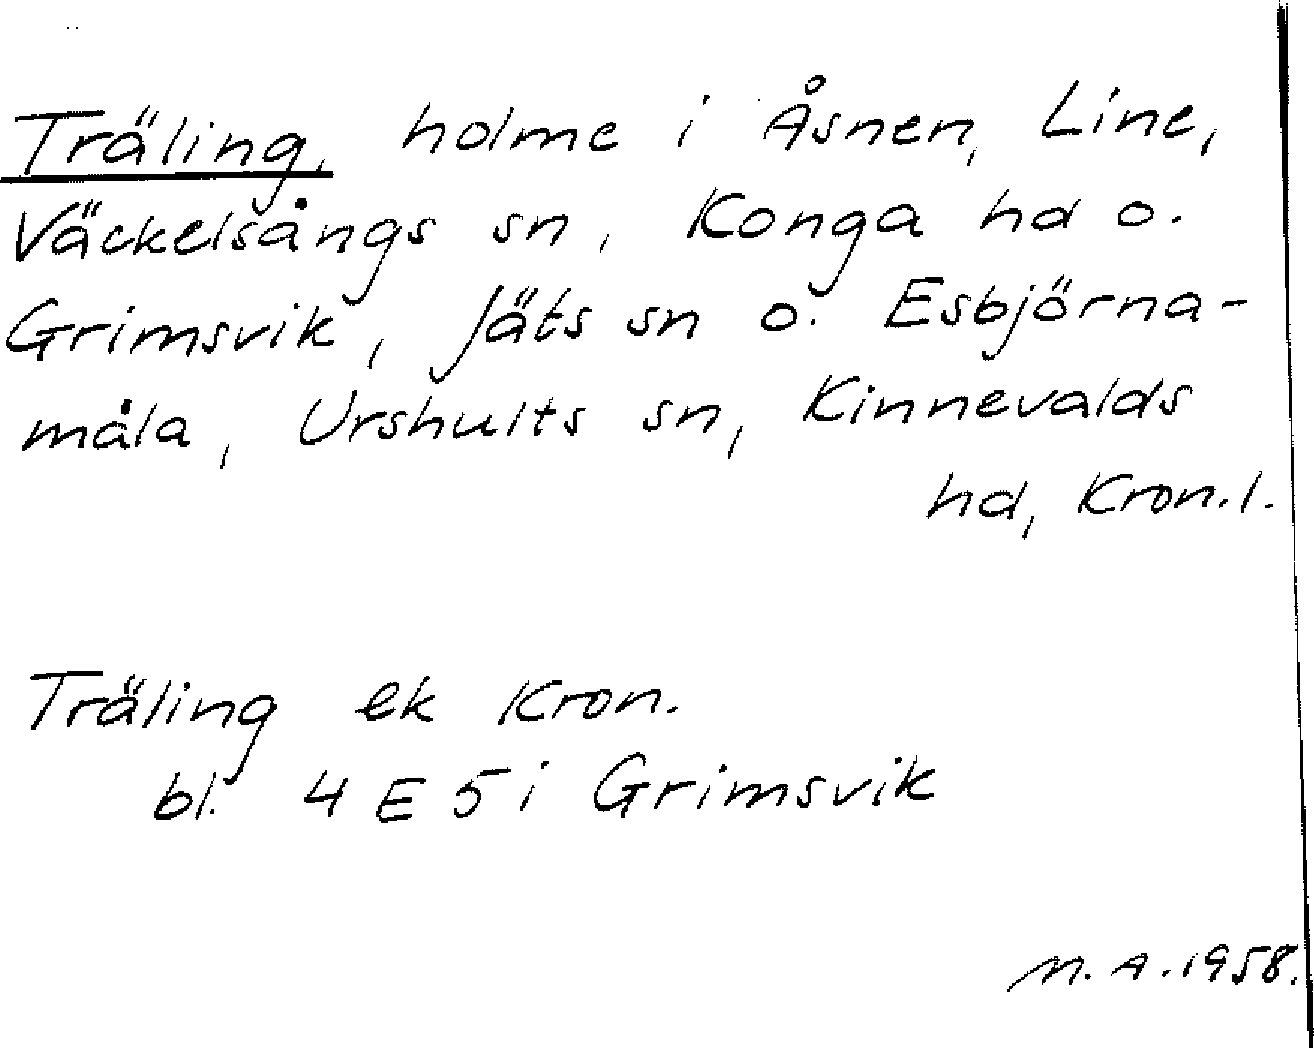 Träling, holme i Åsnen, Line,
Väckelsångs sn, Konga hd o.
Grimsvik, Jäts sn o. Esbjörna-
måla, Urshults sn, Kinnevalds
hd, Kron.l.
Träling ek Kron.
bl. 4 E 5 i Grimsvik
M.A. 1958.